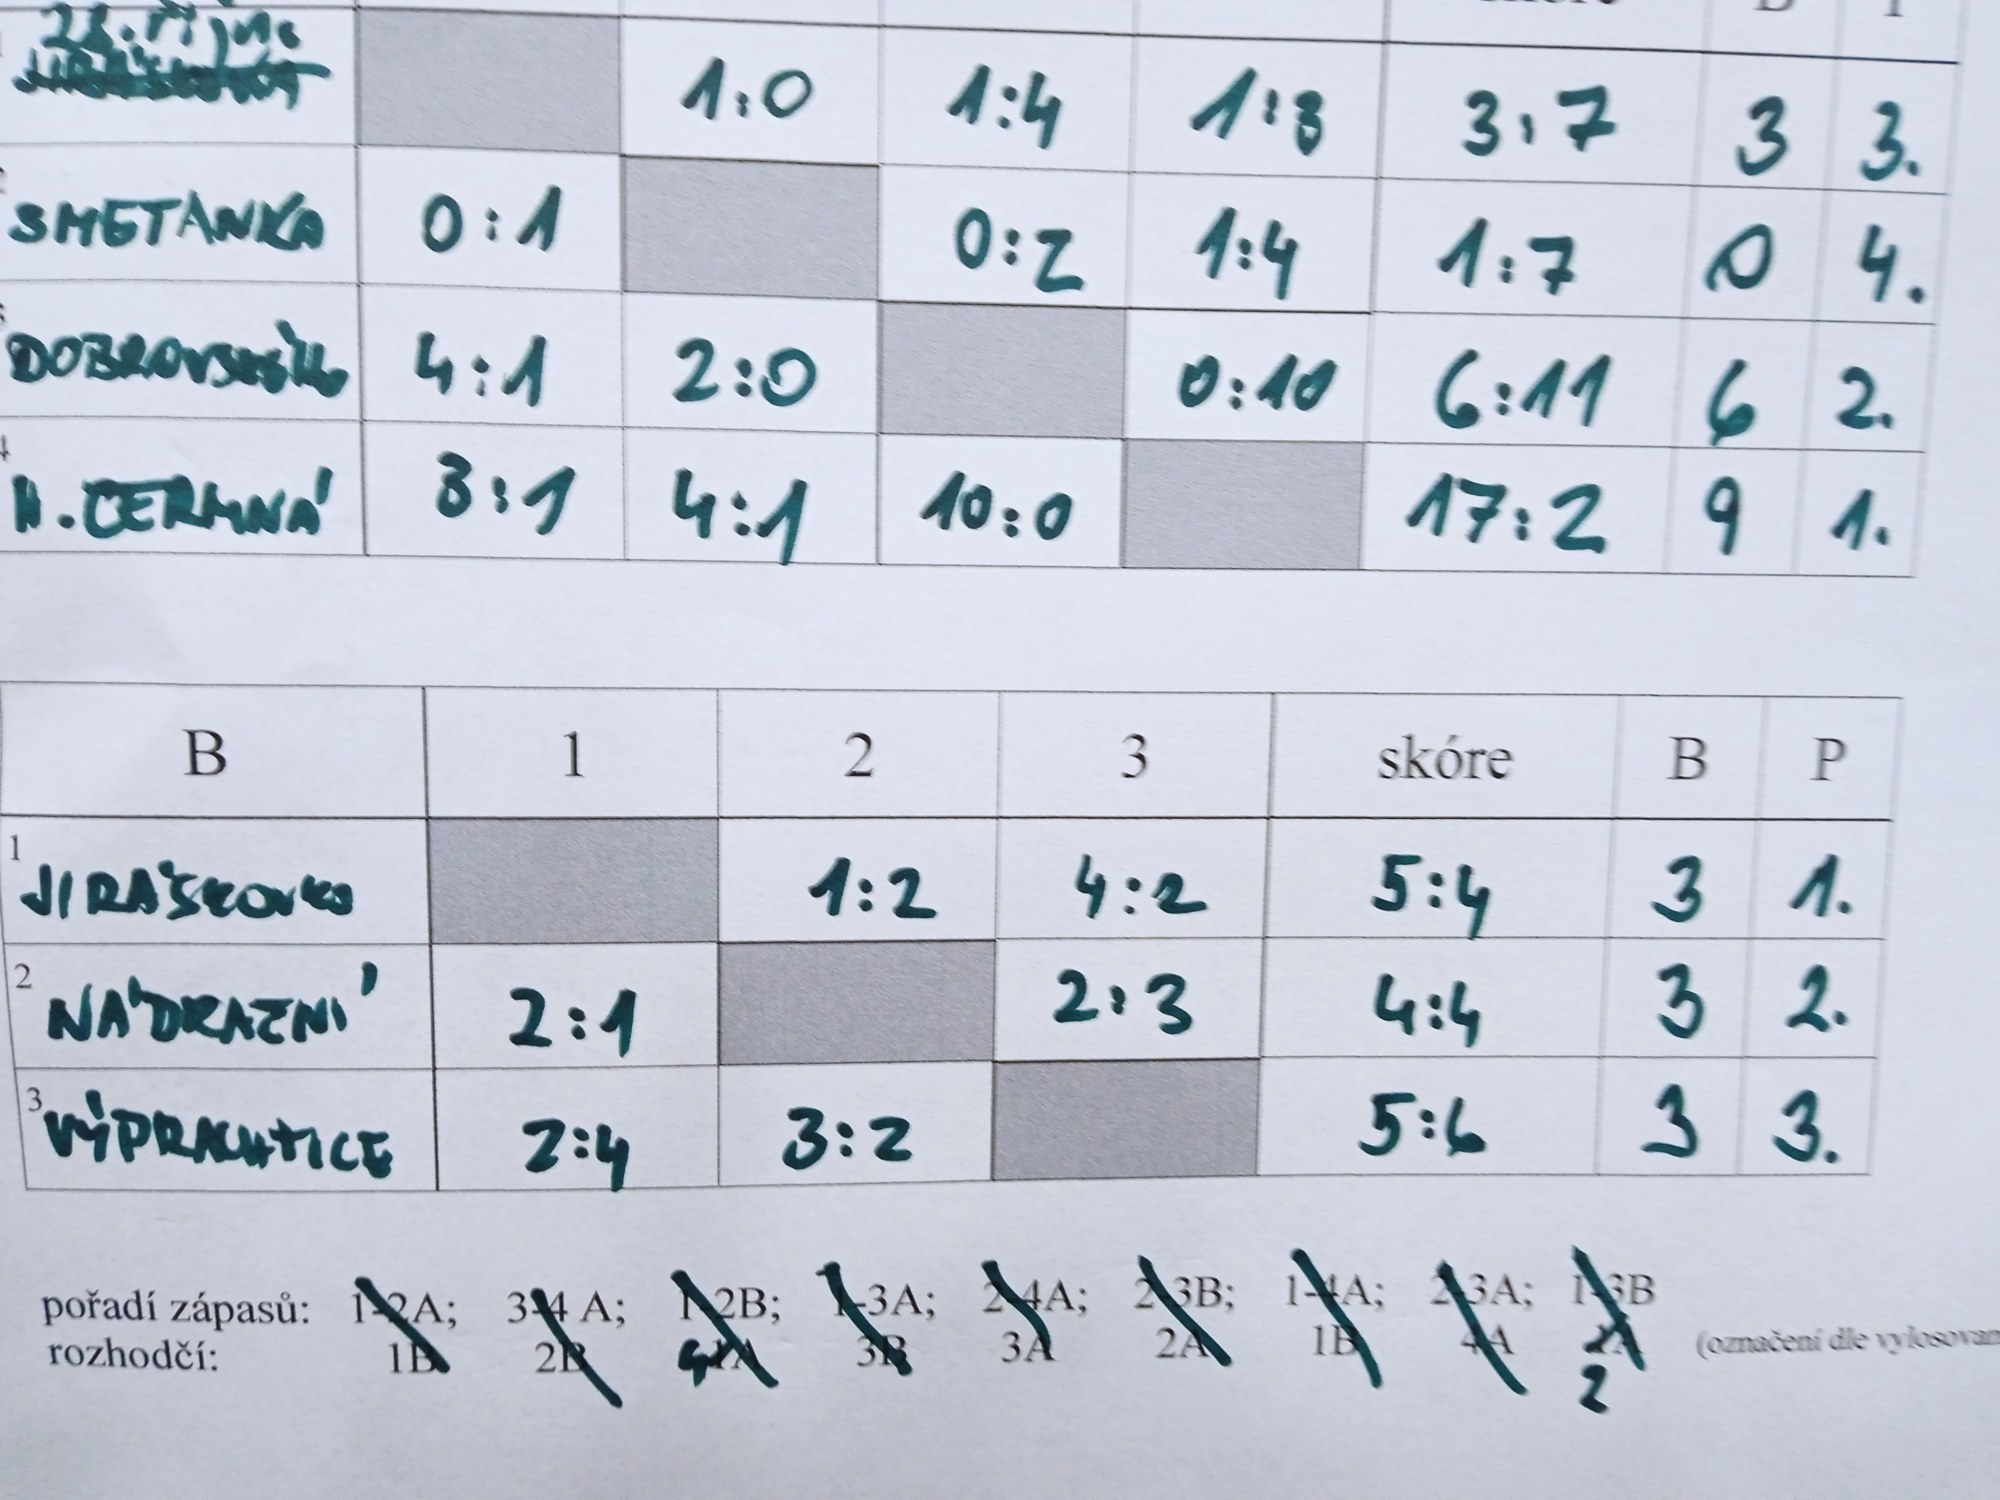 28. října 1:0 1:4 1:3 3:7 3 3.
SMETANKA 0:1 0:2 1:4 1:7 0 4.
4:1 2:0 0:10 6:11 6 2.
4 H. ČERMNÁ 3:1 4:1 10:0 17:2 9 1.
B 1 2 3 skóre B P
1 JIRÁSKOVKA 1:2 4:2 5:4 3 1.
2 NÁDRAZNÍ 2:1 2:3 4:4 3 2.
3 VÝPRACHTICE 2:4 3:2 5:6 3 3.
pořadí zápasů: 1-2A; 3-4 A; 1-2B; 1-3A; 2-4A; 2-3B; 1-4A; 2-3A; 1-3B
rozhodčí: 1B 2B 4 1A 3B 3A 2A 1B 4A (označení dle
2